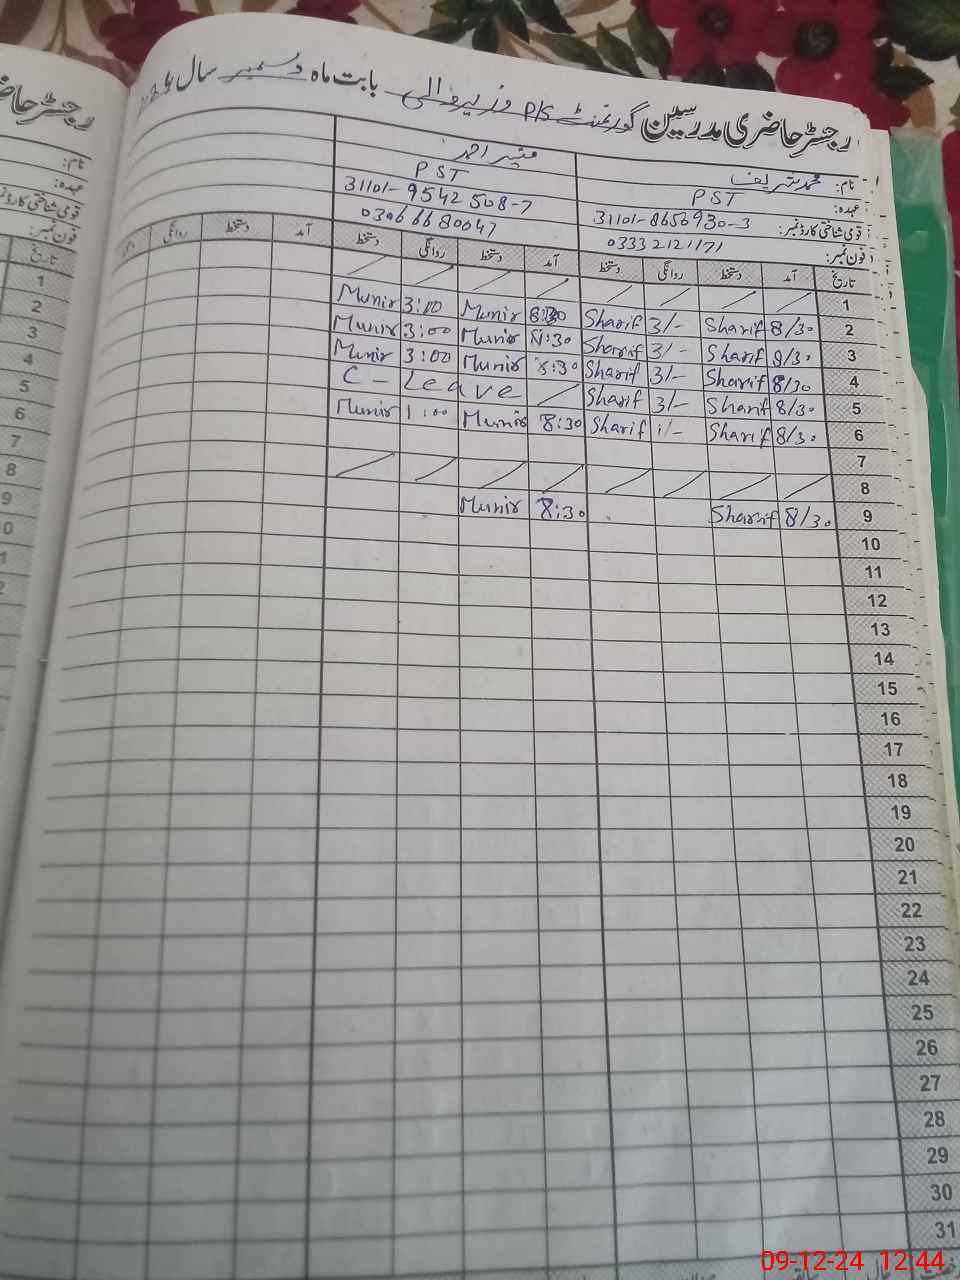 رجسٹر حاضری مدرسین گورنمنٹ P/S وزیروالی بابت ماہ دسمبر سال
نام: محمد شریف منیر احمد
عہدہ: PST PST
قومی شناختی کارڈ نمبر: 31101-8656930-3 31101-9542508-7
فون نمبر: 03332121171 03066680047
تاریخ آمد دستخط روانگی دستخط آمد دستخط روانگی دستخط آمد دستخط روانگی
1 / / / / / / / /
2 8/30 Sharif 3/- Sharif 8:30 Munir 3:00 Munir
3 8/30 Sharif 3/- Sharif 8:30 Munir 3:00 Munir
4 8/30 Sharif 3/- Sharif 8:30 Munir 3:00 Munir
5 8/30 Sharif 3/- Sharif / C - Leave
6 8/30 Sharif 1/- Sharif 8:30 Munir 1:00 Munir
7
8 / / / / / / / /
9 8/30 Sharif 8:30 Munir
10
11
12
13
14
15
16
17
18
19
20
21
22
23
24
25
26
27
28
29
30
31
رجسٹر حاضری
نام:
عہدہ:
قومی شناختی کارڈ نمبر
فون نمبر:
تاریخ
1
2
3
4
5
6
7
8
9
09-12-24 12:44